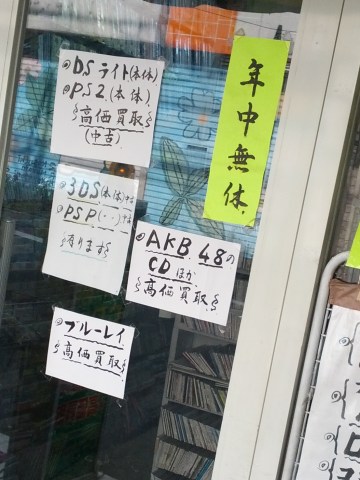 ◎DSライト(本体)
◎PS2(本体)
高価買取
(中古)
年中無休
◎3DS(本体)中古
◎PSP(〃)中古
有ります
◎AKB48の
CDほか
高価買取
◎ブルーレイ
高価買取